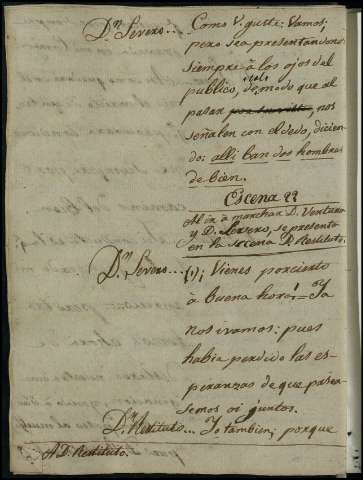 D.n Severo... Como V. guste: Vamos;
pero sea presentandonos
siempre à los ojos del
publico, de modo que al
pasar nos
señalen con el dedo, dicien-
do: alli ban dos hombres
de bien.
Escena 22
Al ir à marchar D. Ventura
y D. Severo, se presenta
en la escena D. Restituto.
D.n Severo... (1); Vienes por cierto
à buena hora! = Ya
nos ivamos: pues
habia perdido las es-
peranzas de que pasea-
semos oi juntos.
D.n Restituto... Yo tambien; porque
A D. Restituto.